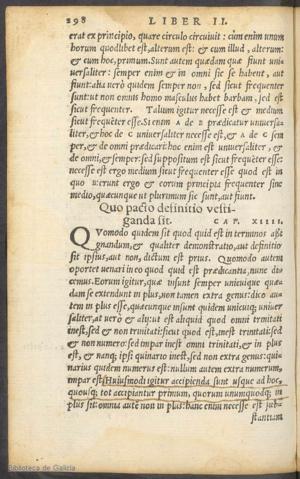 298 LIBER II.
erat ex principio, quare circulo circuiuit : cùm enim unum
horum quodlibet est, alterum est: & cum illud, alterum:
& cum hoc, primum. Sunt autem quædam quæ fiunt uni-
uersaliter: semper enim & in omni sic se habent, aut
fiunt: alia uerò quidem semper non, sed sicut frequenter
sunt: ut non omnis homo masculus habet barbam, sed est
sicut frequenter. Talium igitur necesse est & medium
sicut frequēter esse. Si enim A de B prædicatur uniuersa-
liter, & hoc de C uniuersaliter necesse est, & A de C sem
per, & de omni prædicari: hoc enim est uniuersaliter, &
de omni, & semper: sed suppositum est sicut frequēter esse:
necesse est ergo medium sicut frequenter esse quod est in
quo B: erunt ergo & eorum principia frequenter sine
medio, quæcunque ut plurimum sic sunt, aut fiunt.
Quo pacto definitio vesti-
ganda sit. CAP. XIIII.
QVomodo quidem sit quod quid est in terminos aßi
gnandum, & qualiter demonstratio, aut definitio
sit ipsius, aut non, dictum est prius. Quomodo autem
oportet uenari in eo quod quid est prædicantia, nunc di-
cemus. Eorum igitur, quæ insunt semper unicuique quæ-
dam se extendunt in plus, non tamen extra genus: dico au-
tem in plus esse, quæcunque insunt quidem unicuiq; uniuer
saliter, at uerò & alij: ut est aliquid quod omni trinitati
inest, sed & non trinitati: sicut quod est, inest trinitati: sed
& non numero: sed impar inest omni trinitati, & in plus
est, & nanq; ipsi quinario inest, sed non extra genus: qui-
narius quidem numerus est: nullum autem extra numerum,
impar est. Huiusmodi igitur accipienda sunt usque ad hoc,
quousq; tot accipiantur primum, quorum unumquodq; in
plus sit: omnia autē non in plus: hanc enim necesse est sub-
stantiam
Biblioteca de Galicia